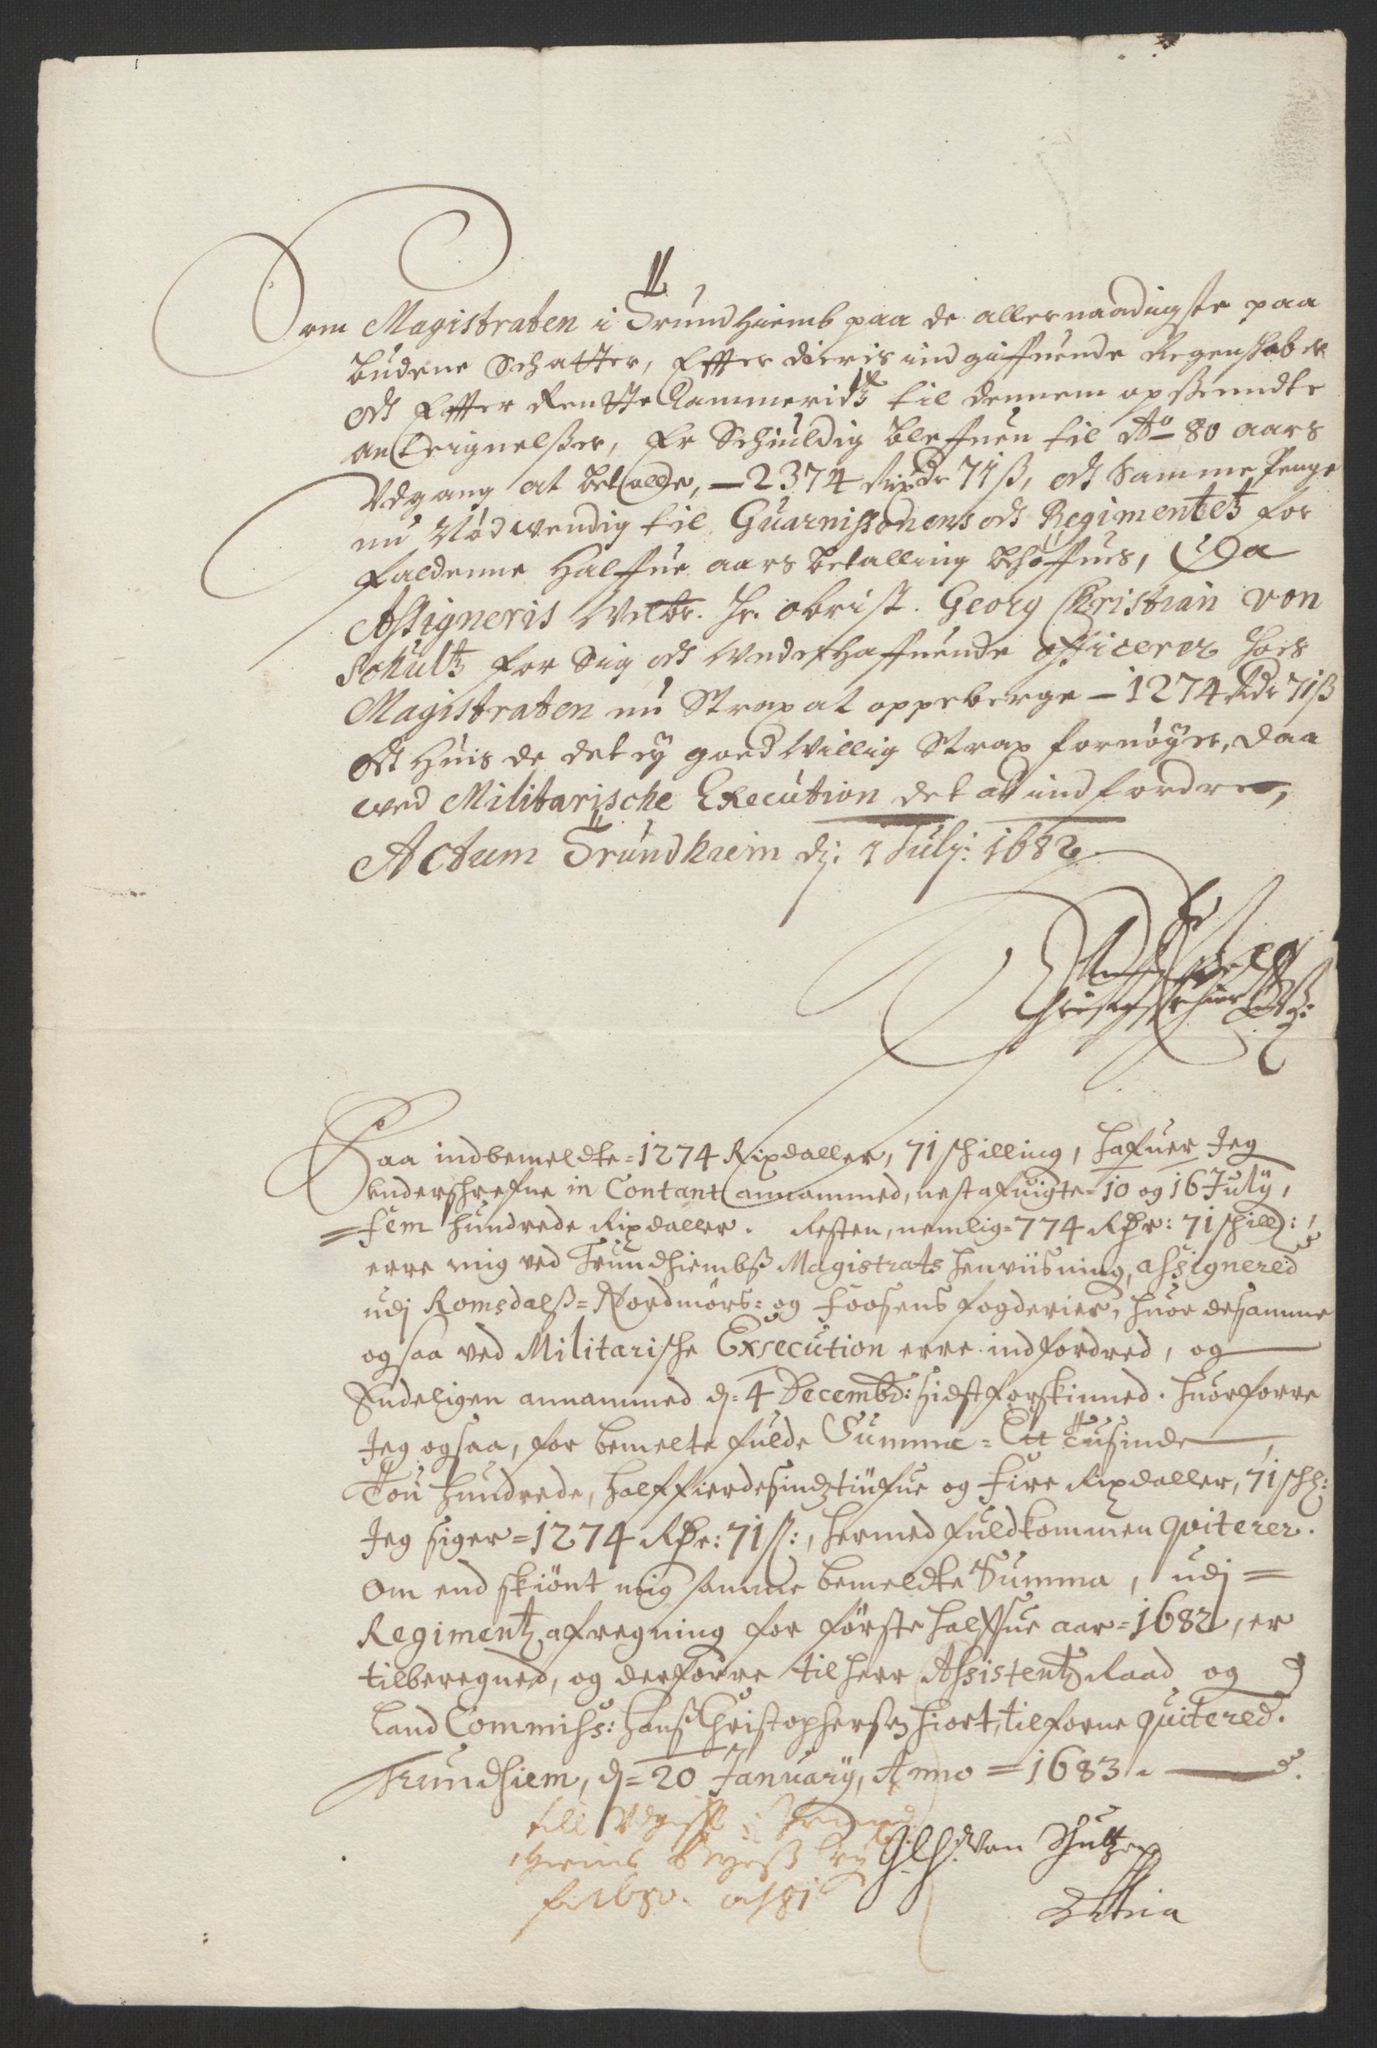 Som Magistraten i Trundhiemb paa de allernaadigste paa
budene Schatter, Effter dieris indgiffuende Regenskaber
och Effter Rentte Cammeridtz til dennem opsendte
antteignelsser, Er Schiuldig bleffuen til Ao 80 aars
Udgang at betalle, – 2374 Rixdr 71 ß, och Samme Penge
nu Nödwendig til Guarnissonens och Regimentetz for
faldenne halffue aars betalling behöffues, Da
Assigneris Welbr. Hr. Obrist. Georg Christian von
Schultz for Sig och Underhaffuende officerer hois
Magistraten nu Strax at oppeberge – 1274 Rdr 71 ß
och huis de det ey goed Willig Strax fornøyer, daa
wed Militarische Execution det at indfordre,
Actum Trundhiem dj: 7 Julj: 1682

Paa indbemeldte = 1274 Rixdaller, 71 schilling, hafuer Jeg
underschrefne in Contant annammed, nest afuigte = 10 og 16 July,
= fem hundrede Rixdaller. Resten, nemlig = 774 Rdr: 71 schill:
erre mig ved Trundhiembß Magistrats henviisning, assignered
udj Romsdalß = Nordmörs = og Foosens fogderier, huor desamme
ogsaa ved Militarische Exsecution erre indfordred, og
Endeligen annammed d = 4 Decembr: sidst forskinned. huorforre
Jeg ogsaa, for bemelte fulde Summa = Ett Tusinde,
Tou hundrede, halffierdesindztiufue og fire Rixdaller, 71 schl:
Jeg siger = 1274 Rdr: 71 ß:, hermed fuldkommen qviterer.
Om end skiönt mig samme bemeldte Summa, udj =
Regimentz afregning for förste halfue aar = 1682, er
tilberegned, og derforre til herr Assistentz Raad og
Land Commiss: Hanß Christophersen Hiort, tilforne quitered.
Trundhiem, d = 20 January, Anno = 1683.
till
G. C. Von Schultzen